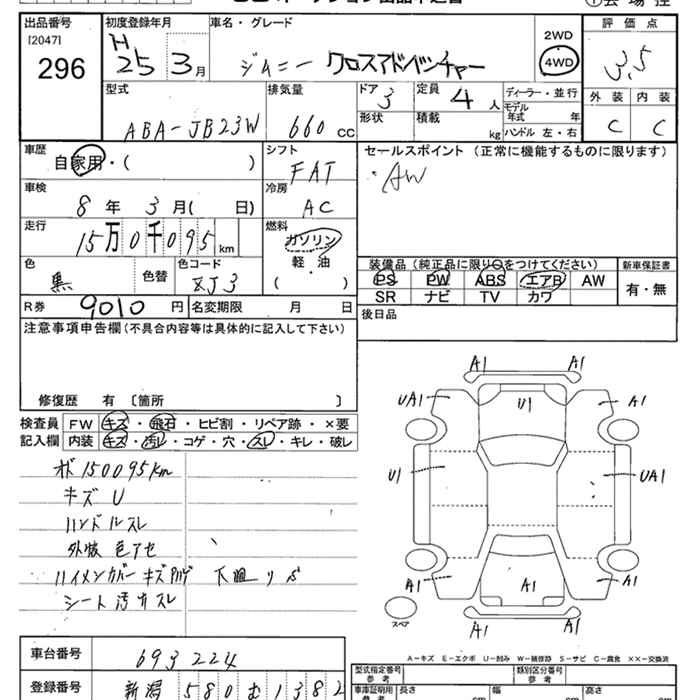 出品番号
[2047]
296
初度登録年月
H
25 3月
車名・グレード
ジムニー クロスアドベンチャー
2WD
4WD
評価点
3.5
外装 内装
C C
型式
ABA-JB23W
排気量
660 CC
ドア
3
形状
定員
4 人
積載
kg
ディーラー・並行
モデル
年式 年
ハンドル 左・右
車歴
自家用・( )
シフト
FAT
セールスポイント (正常に機能するものに限ります)
・AW
車検
8年 3月( 日)
冷房
AC
走行
15万0千095 km
燃料
ガソリン
軽・油
( )
色
黒
色替
色コード
ZJ3
装備品 (純正品に限り○をつけてください)
PS PW ABS エアB AW
SR ナビ TV カワ
新車保証書
有・無
R券
9010 円
名変期限 月 日
後日品
注意事項申告欄 (不具合内容等は具体的に記入して下さい)
修復歴 有 〔箇所 〕
検査員
記入欄
FW キズ・飛石・ヒビ割・リペア跡・×要
内装 キズ・汚レ・コゲ・穴・スレ・キレ・破レ
メ 150095km
キズ U
ハンドルスレ
外装 色アセ
シート汚れスレ
A1 A1
UA1 U1 A1
U1 UA1
A1 A1 A1
A1 A1
スペア
A-キズ E-エクボ U-凹み W-補修跡 S-サビ C-腐食 ××-交換済
車台番号
693224
登録番号
新潟 580 む 1382
型式指定番号
参考
類別区分番号
参考
車庫証明用
参考
長さ cm
幅 cm
高さ cm